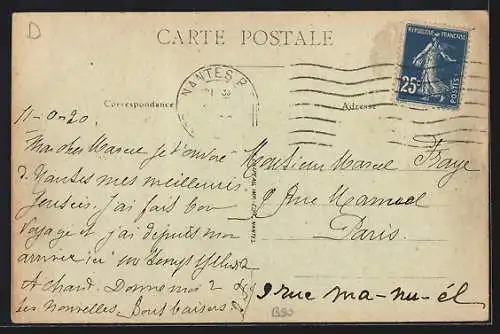 D
CARTE POSTALE
NANTES R.
REPUBLIQUE FRANÇAISE
25c
POSTES
Correspondance
Adresse
11-0-20.
Mon cher Marcel je t'envoie
de Nantes mes meilleurs
pensées. J'ai fait bon
voyage et j'ai depuis mon
arrivée ici un temps
chaud. Donne moi 2
tes nouvelles. Bons baisers
Monsieur Marcel Faye
9 Rue Manuel
Paris.
9 rue ma-nu-él
B50